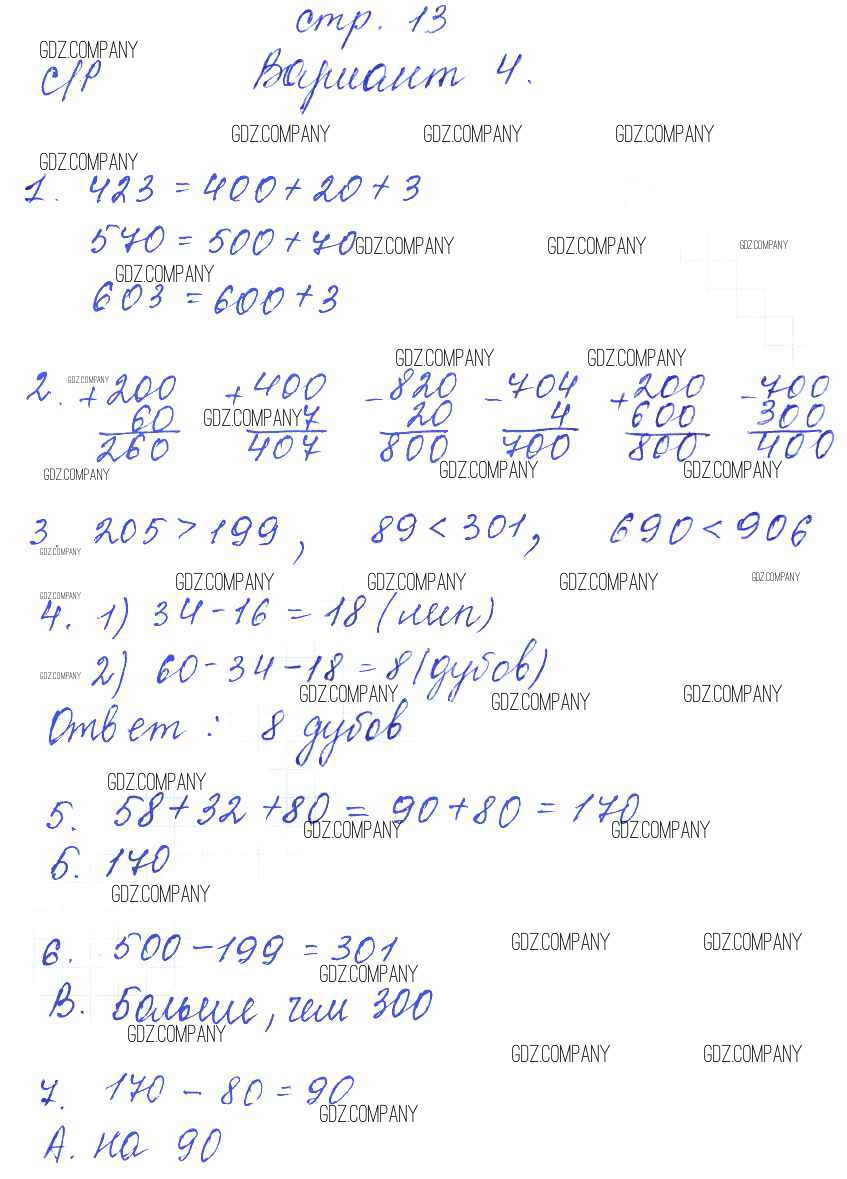 стр. 13
GDZ.COMPANY
С/Р Вариант 4.
GDZ.COMPANY GDZ.COMPANY GDZ.COMPANY
GDZ.COMPANY
1. 423 = 400 + 20 + 3
570 = 500 + 70
GDZ.COMPANY GDZ.COMPANY GDZ.COMPANY
GDZ.COMPANY
603 = 600 + 3
GDZ.COMPANY GDZ.COMPANY
GDZ.COMPANY
2. + 200 + 400 - 820 - 704 + 200 - 700
60 7 20 4 600 300
GDZ.COMPANY
260 407 800 700 800 400
GDZ.COMPANY GDZ.COMPANY GDZ.COMPANY
3. 205 > 199, 89 < 301, 690 < 906
GDZ.COMPANY
GDZ.COMPANY GDZ.COMPANY GDZ.COMPANY GDZ.COMPANY
GDZ.COMPANY
4. 1) 34 - 16 = 18 (лип)
2) 60 - 34 - 18 = 8 (дубов)
GDZ.COMPANY
GDZ.COMPANY GDZ.COMPANY GDZ.COMPANY
Ответ: 8 дубов
GDZ.COMPANY
5. 58 + 32 + 80 = 90 + 80 = 170
GDZ.COMPANY GDZ.COMPANY
Б. 170
GDZ.COMPANY
6. 500 - 199 = 301
GDZ.COMPANY GDZ.COMPANY
GDZ.COMPANY
В. Больше, чем 300
GDZ.COMPANY
GDZ.COMPANY GDZ.COMPANY
7. 170 - 80 = 90
GDZ.COMPANY
А. на 90